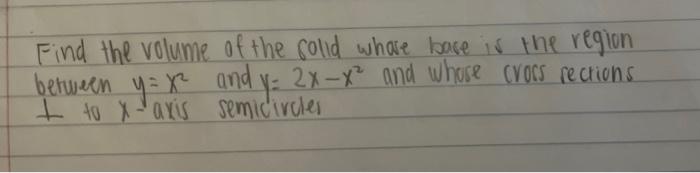 Find the volume of the solid whose base is the region
between y = x² and y = 2x - x² and whose cross sections
⊥ to x-axis semicircles